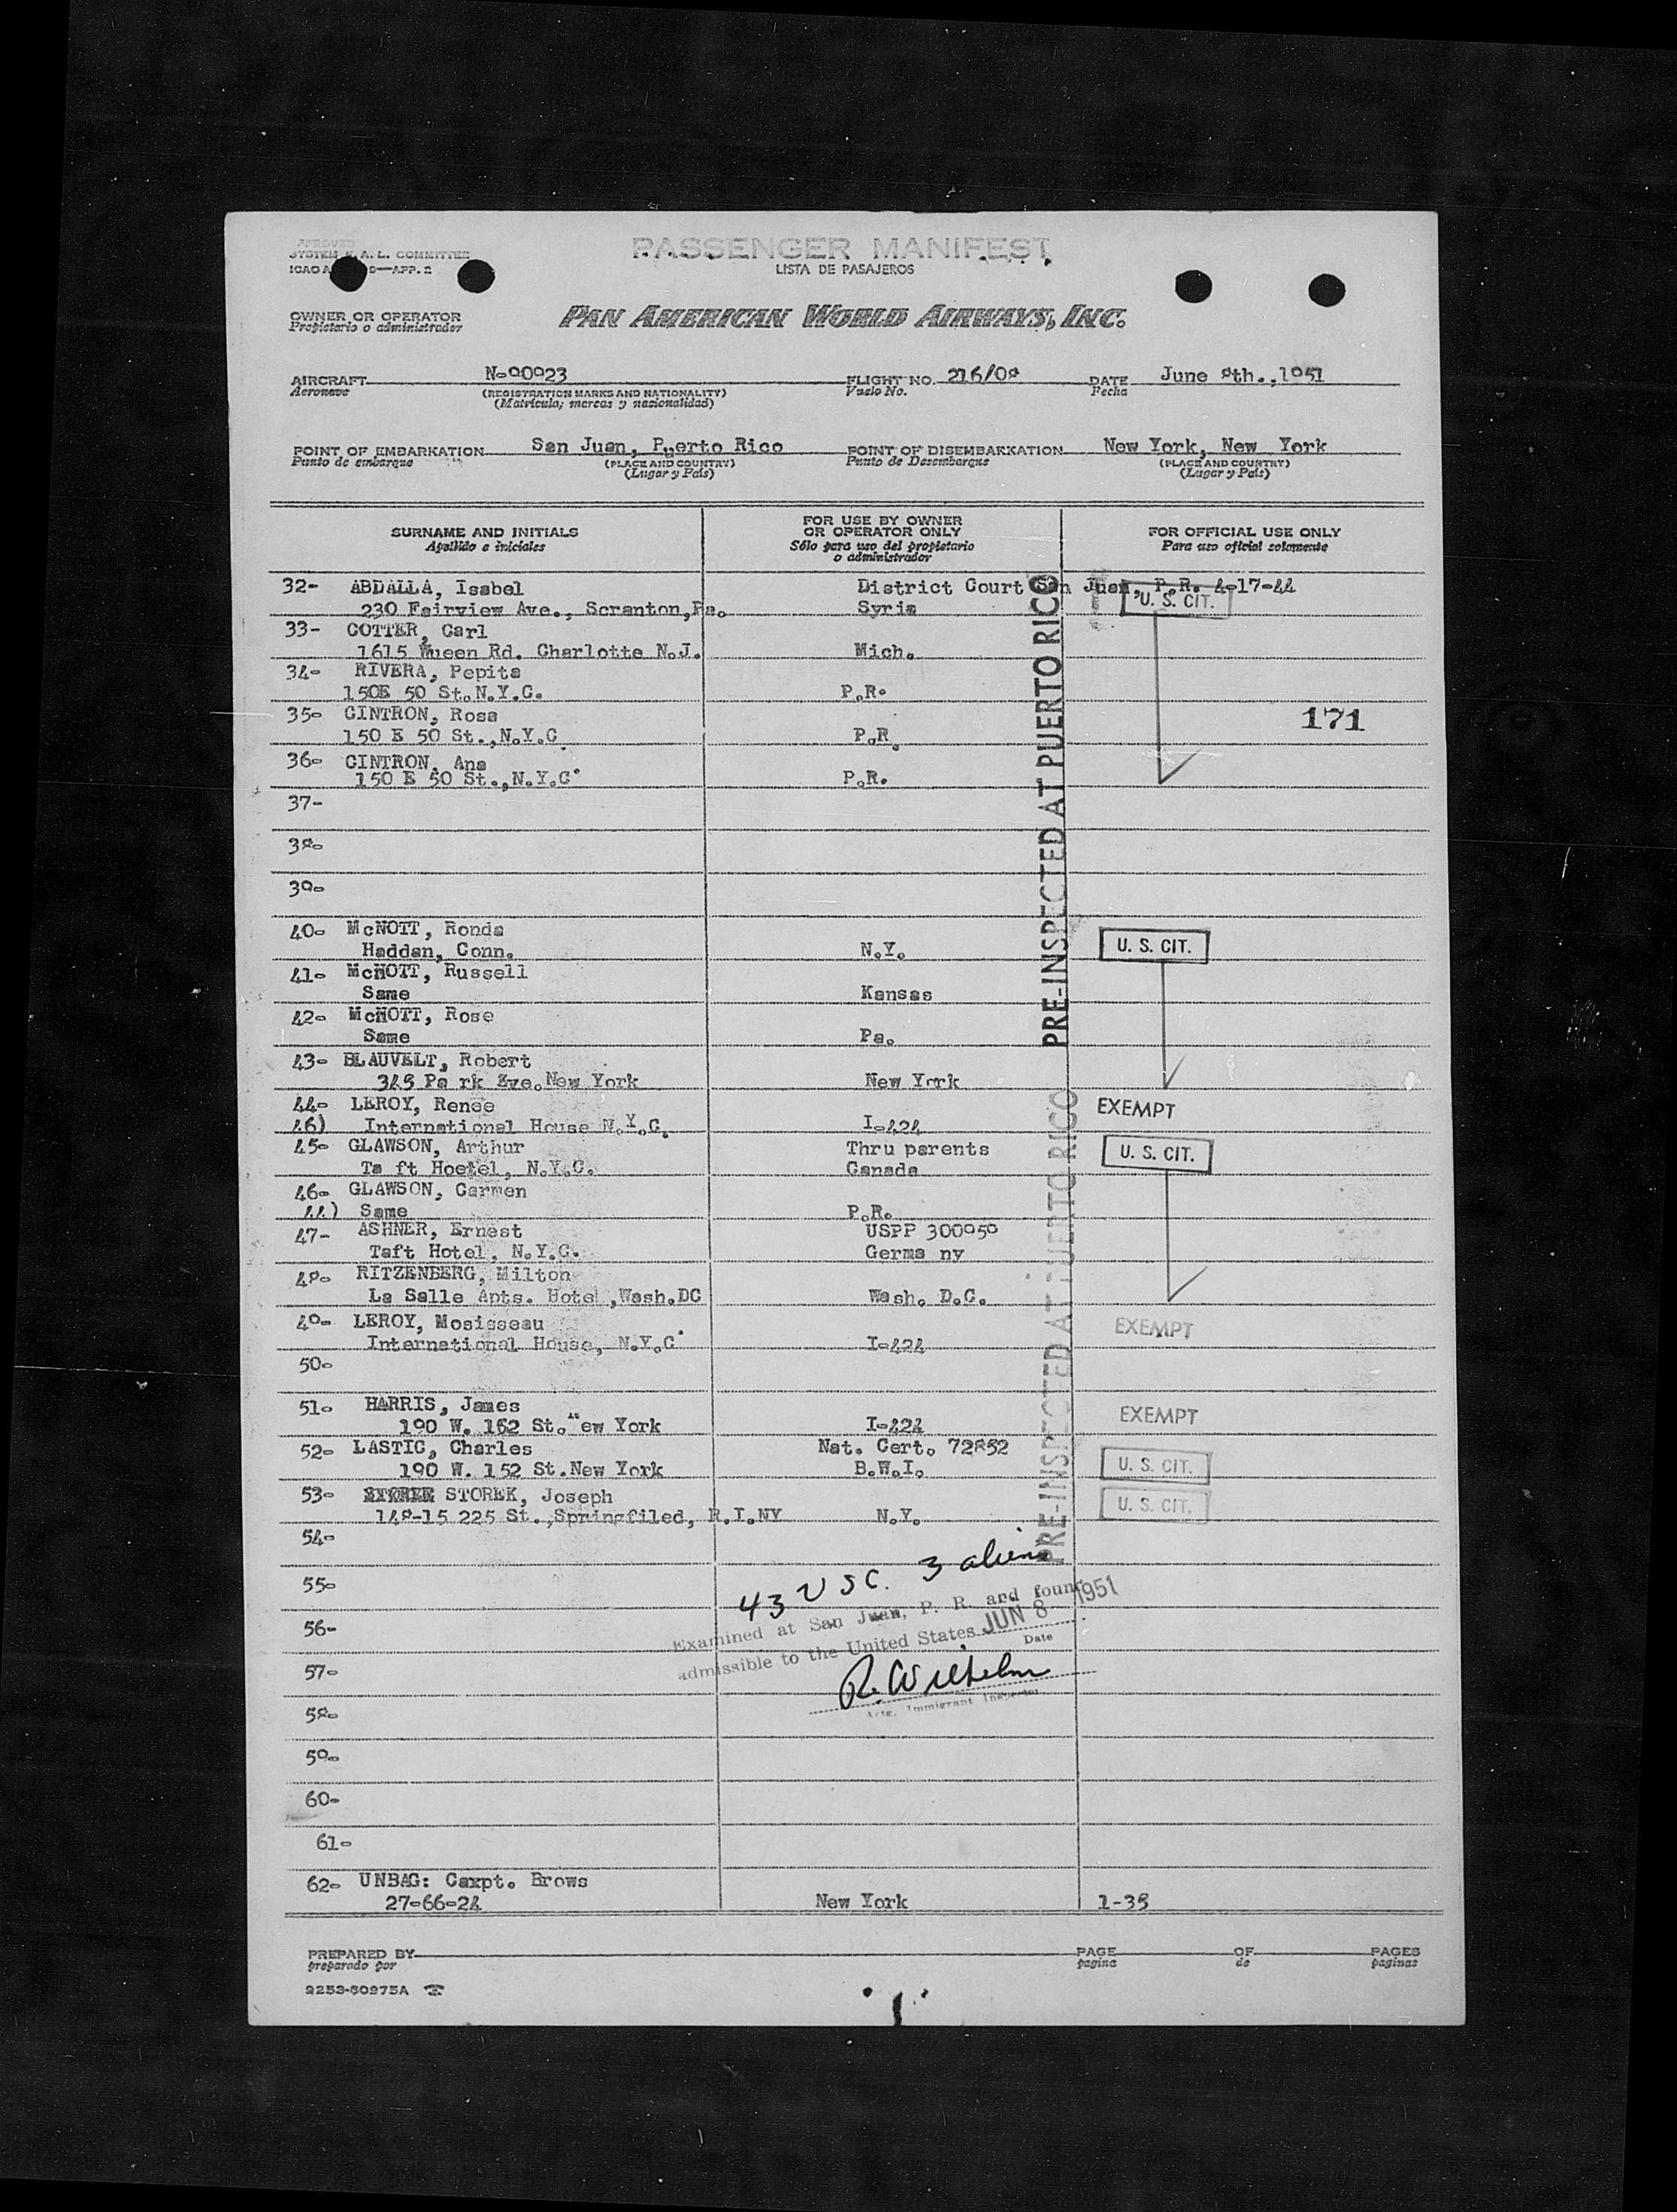 APROVED
SYSTEM F. A. L. COMMITTEE
ICAO A 9—APP. 2
PASSENGER MANIFEST
LISTA DE PASAJEROS
OWNER OR OPERATOR
Propietario o administrador
PAN AMERICAN WORLD AIRWAYS, INC.
AIRCRAFT N-90923 FLIGHT NO. 216/08 DATE June 8th.,1951
Aeronave (REGISTRATION MARKS AND NATIONALITY) Vuelo No. Fecha
(Matrícula; marcas y nacionalidad)
POINT OF EMBARKATION San Juan, Puerto Rico POINT OF DISEMBARKATION New York, New York
Punto de embarque (PLACE AND COUNTRY) Punto de Desembarque (PLACE AND COUNTRY)
(Lugar y País) (Lugar y País)
SURNAME AND INITIALS
Apellido e iniciales
FOR USE BY OWNER
OR OPERATOR ONLY
Sólo para uso del propietario
o administrador
FOR OFFICIAL USE ONLY
Para uso oficial solamente
32- ABDALLA, Isabel District Court San Juan, P.R. 4-17-44
230 Fairview Ave., Scranton,Pa. Syria U. S. CIT.
33- COTTER, Carl
1615 Wueen Rd. Charlotte N.J. Mich.
34- RIVERA, Pepita
150E 50 St.N.Y.C. P.R.
35- CINTRON, Rosa 171
150 E 50 St.,N.Y.C. P.R.
36- CINTRON, Ana
150 E 50 St.,N.Y.C. P.R.
37-
38-
39-
PRE-INSPECTED AT PUERTO RICO
40- McNOTT, Ronda
Haddan, Conn. N.Y. U. S. CIT.
41- McNOTT, Russell
Same Kansas
42- McNOTT, Rose
Same Pa.
43- BLAUVELT, Robert
345 Pa rk Eve.New York New York
44- LEROY, Renee EXEMPT
46) International House N.Y.C. I-424
45- GLAWSON, Arthur Thru parents U. S. CIT.
Ta ft Hoetel, N.Y.C. Canada
46- GLAWSON, Carmen
44) Same P.R.
47- ASHNER, Ernest USPP 300950
Taft Hotel, N.Y.C. Germa ny
48- RITZENBERG, Milton
La Salle Apts. Hotel,Wash.DC Wash. D.C.
49- LEROY, Mosisseau EXEMPT
International House, N.Y.C. I-424
50-
51- HARRIS, James EXEMPT
190 W. 152 St. New York I-424
52- LASTIC, Charles Nat. Cert. 72852
190 W. 152 St.New York B.W.I. U. S. CIT.
53- STOREK, Joseph U. S. CIT.
148-15 225 St.,Springfiled, R.I.NY N.Y.
PRE-INSPECTED AT PUERTO RICO
54-
55-
43 USC. 3 aliens
56-
Examined at San Juan, P. R. and found
admissible to the United States JUN 8 1951
Date
57-
R. Wilhelm
Actg. Immigrant Inspector
58-
59-
60-
61-
62- UNBAG: Caxpt. Brows
27-66-24 New York 1-35
PREPARED BY PAGE OF PAGES
preparado por pagina de paginas
9253-60975A